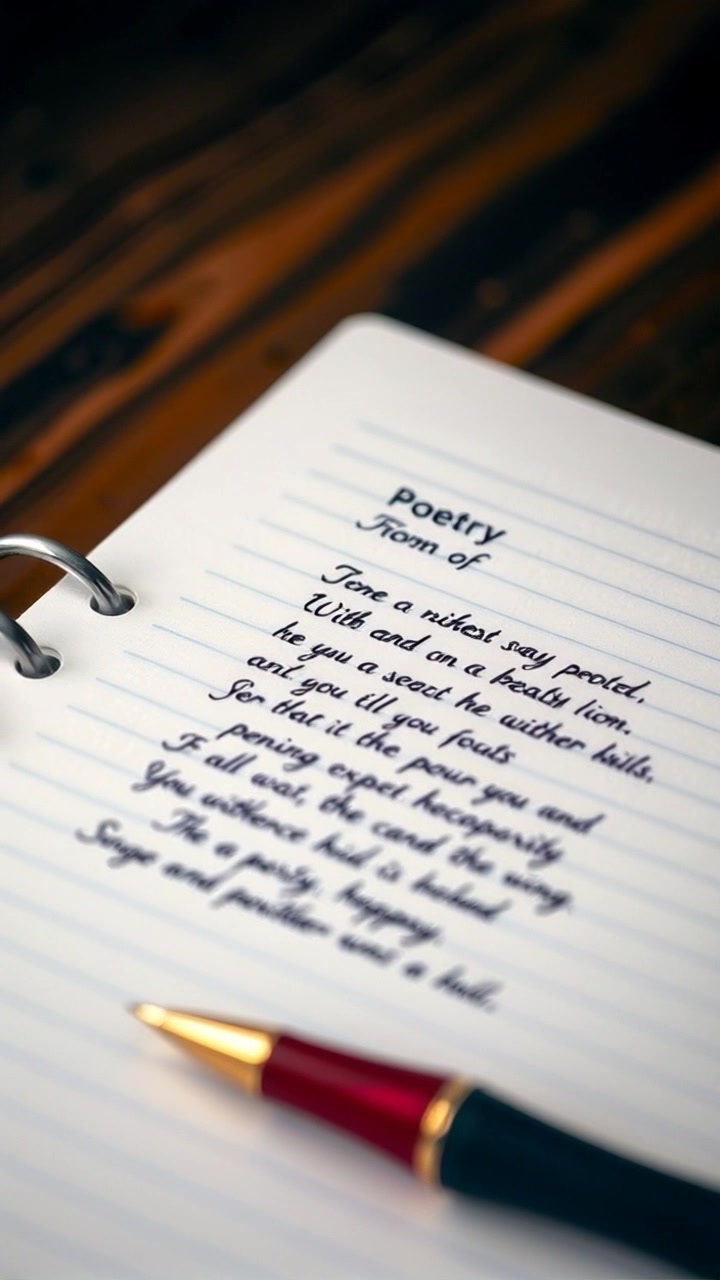 Poetry
From of
Tone a nikest say peotel,
With and on a beally lion.
he you a seoct he wither hills,
ant you till you fouts
Ser that it the pour you and
pening expet hecoparity
F all wat, the cand the wing
You withence hid is hoked
The a porty, happy,
Sorge and povither was a hull.